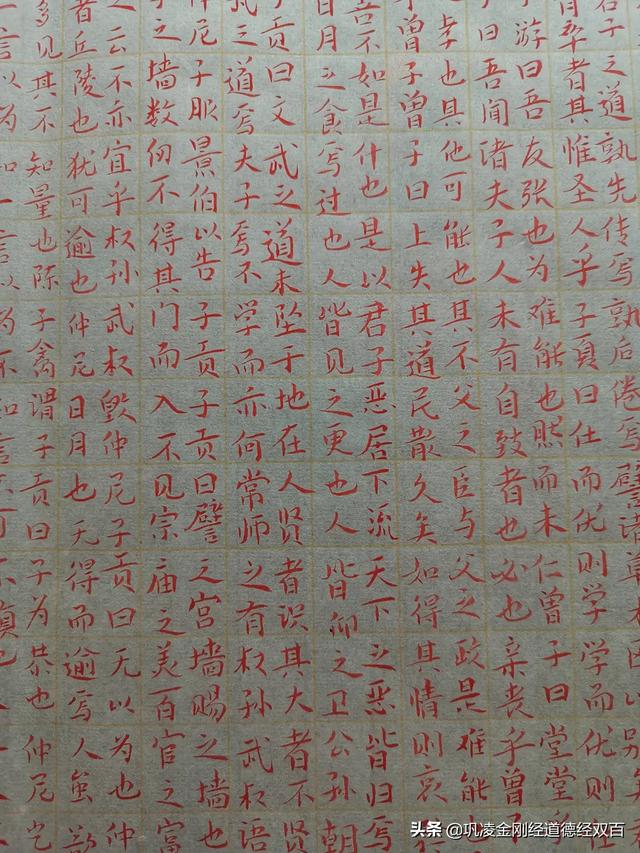 君子之道孰先传焉孰后倦焉譬诸草木区以别
有卒者其惟圣人乎子夏曰仕而优则学学而优则仕
子游曰吾友张也为难能也然而未仁曾子曰堂堂乎
曰吾闻诸夫子人未有自致者也必也亲丧乎曾子
孝也其他可能也其不父之臣与父之政是难能
曾子曾子曰上失其道民散久矣如得其情则哀
善不如是什也是以君子恶居下流天下之恶皆归焉
日月之食焉过也人皆见之更也人皆仰之卫公孙朝
子贡曰文武之道未坠于地在人贤者识其大者不贤
武之道焉夫子焉不学而亦何常师之有叔孙武叔语
仲尼子服景伯以告子贡子贡曰譬之宫墙赐之墙也
子之墙数仞不得其门而入不见宗庙之美百官之富
之云不亦宜乎叔孙武叔毁仲尼子贡曰无以为也仲
者丘陵也犹可逾也仲尼日月也无得而逾焉人虽欲
多见其不知量也陈子禽谓子贡曰子为恭也仲尼岂
一言以为知一言以为不知言不可不慎也
头条 @巩凌金刚经道德经双百